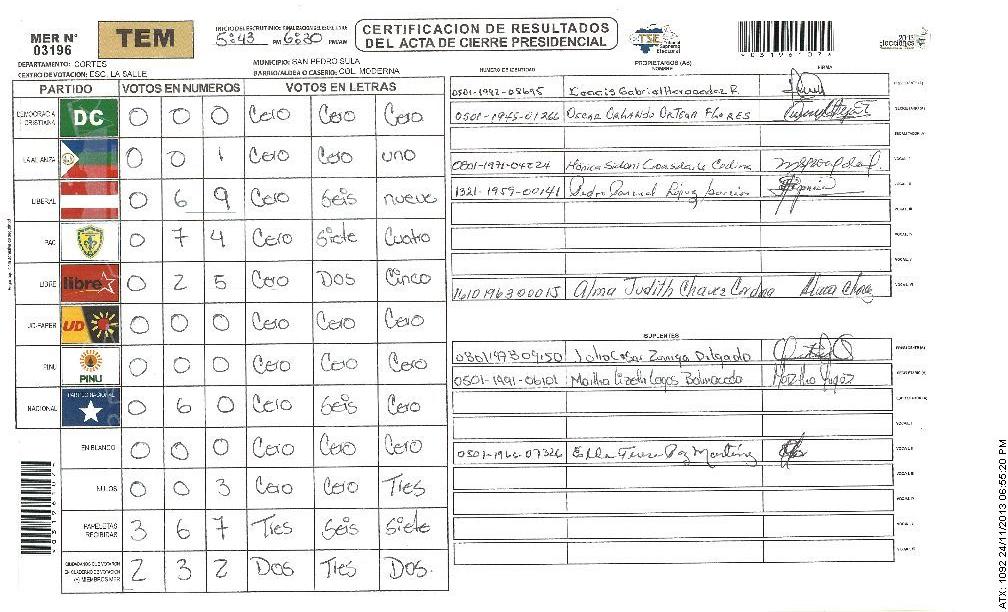 MER Nº
03196
TEM
INICIO DEL ESCRUTINIO: FINALIZACIÓN DEL ESCRUTINIO:
5:43 PM 6:30 PM/AM
CERTIFICACION DE RESULTADOS
DEL ACTA DE CIERRE PRESIDENCIAL
TSE
2013
elecciones
DEPARTAMENTO: CORTES
MUNICIPIO: SAN PEDRO SULA
CENTRO DE VOTACION: ESC. LA SALLE
BARRIO/ALDEA O CASERIO: COL. MODERNA
PARTIDO VOTOS EN NUMEROS VOTOS EN LETRAS
DEMOCRACIA CRISTIANA DC 0 0 0 Cero Cero Cero
LA ALIANZA 0 0 1 Cero Cero uno
LIBERAL 0 6 9 Cero Seis nueve
PAC 0 7 4 Cero Siete Cuatro
LIBRE libre 0 2 5 Cero Dos Cinco
UD-FAPER UD 0 0 0 Cero Cero Cero
PINU PINU 0 0 0 Cero Cero Cero
NACIONAL PARTIDO NACIONAL 0 6 0 Cero Seis Cero
EN BLANCO 0 0 0 Cero Cero Cero
NULOS 0 0 3 Cero Cero Tres
PAPELETAS RECIBIDAS 3 6 7 Tres Seis Siete
CIUDADANOS QUE VOTARON EN CUADERNO DE VOTACION (+) MIEMBROS MER 2 3 2 Dos Tres Dos.
NUMERO DE IDENTIDAD PROPIETARIOS (AS) NOMBRE FIRMA
0501-1992-08695 Gabriel Hernandez R.
Oscar Orlando Ortega Flores
Monica
1321-1959-00141 Pedro
1610196300015 Alma Judith Chavez Cardona Alma Chavez
SUPLENTES
Julio Cesar Zuniga Delgado
0501-1991-06101 Martha Lizeth Lagos Balmaceda
0501-1966-07326 Paz Martinez
ATX: 1092 24/11/2013 06:55:20 PM